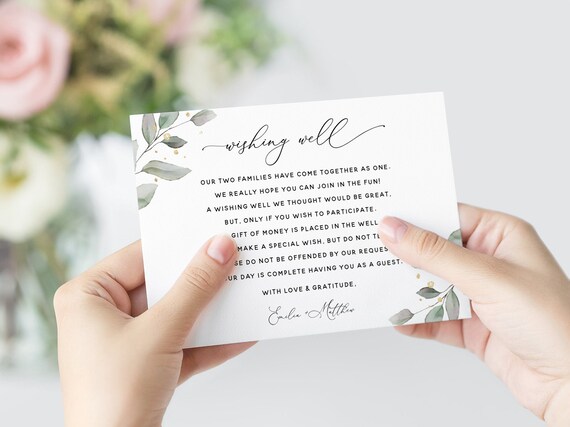 wishing well
OUR TWO FAMILIES HAVE COME TOGETHER AS ONE.
WE REALLY HOPE YOU CAN JOIN IN THE FUN!
A WISHING WELL WE THOUGHT WOULD BE GREAT,
BUT, ONLY IF YOU WISH TO PARTICIPATE.
GIFT OF MONEY IS PLACED IN THE WELL
MAKE A SPECIAL WISH, BUT DO NOT
DO NOT BE OFFENDED BY OUR REQUEST
OUR DAY IS COMPLETE HAVING YOU AS A GUEST.
WITH LOVE & GRATITUDE.
Emilia & Matthew